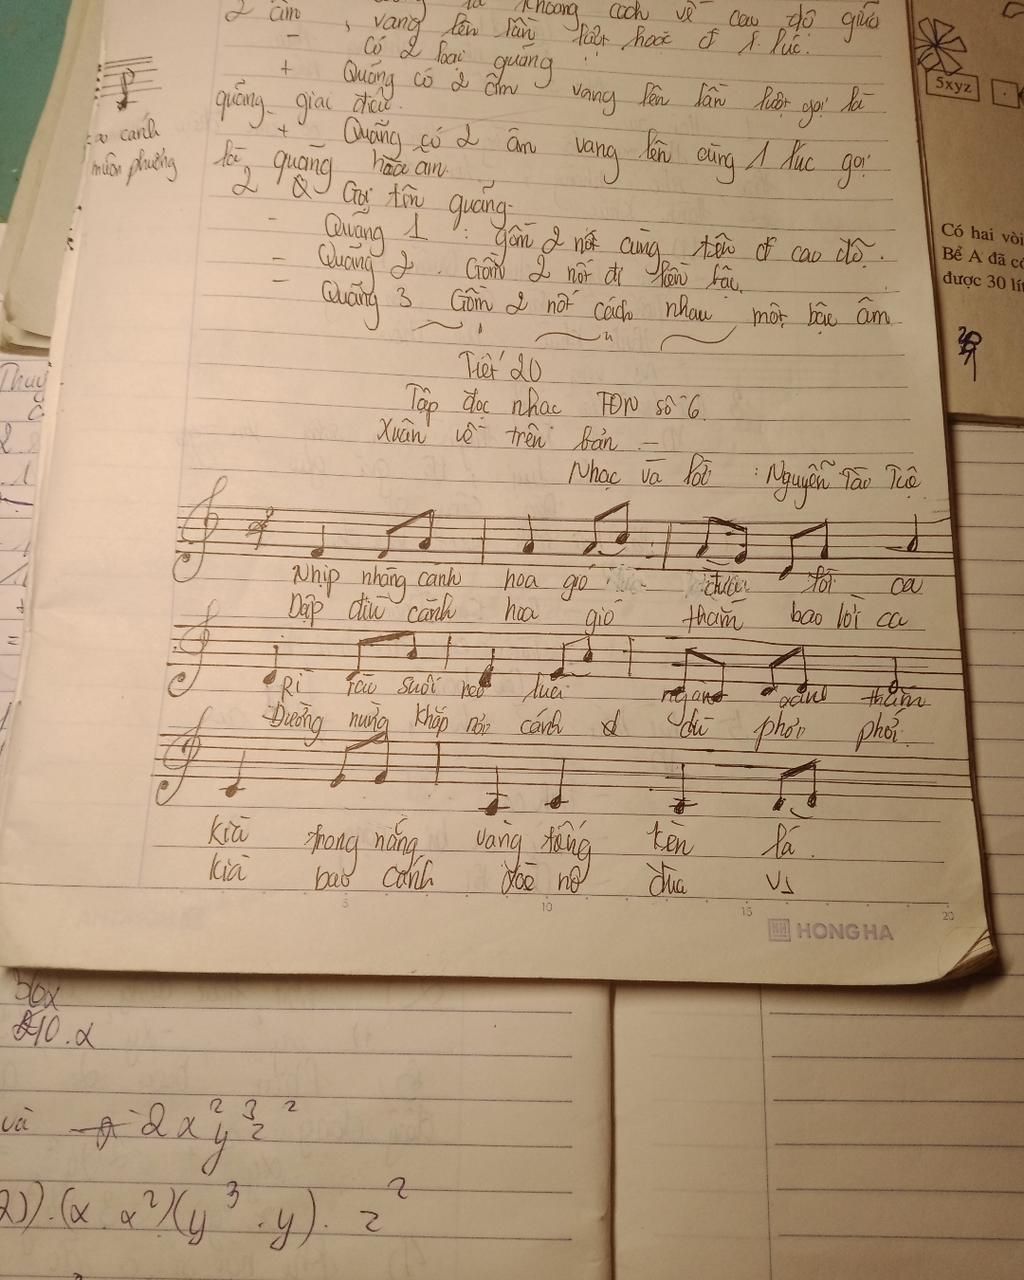 khoảng cách về cao độ giữa
2 âm, vang lên lần lượt hoặc ở 1 lúc.
- Có 2 loại quãng
+ Quãng có 2 âm vang lên lần lượt gọi là
quãng giai điệu.
+ Quãng có 2 âm vang lên cùng 1 lúc gọi
là quãng hòa âm.
2 Gọi tên quãng.
- Quãng 1 : gồm 2 nốt cùng tên ở cao độ.
- Quãng 2 . Gồm 2 nốt đi liền bậc.
- Quãng 3 Gồm 2 nốt cách nhau một bậc âm
Tiết 20
Tập đọc nhạc TĐN số 6.
Xuân về trên bản -
Nhạc và lời : Nguyễn Tài Tuệ
Nhịp nhàng cánh hoa gió lời ca
Dập dìu cánh hoa gió thắm bao lời ca
Rì rào suối reo ngàn xanh thắm
Đường nương khắp nơi cánh dù phơi phới.
Kìa trong nắng vàng tiếng kèn lá.
Kìa bao cánh nở đua
cánh
muôn phương
5xyz
Có hai vòi
Bể A đã có
được 30 lí
HONG HA
5 10 15 20
36x
210.x
và 2x²y³z²
2)).(x.x²)(y³.y).z²